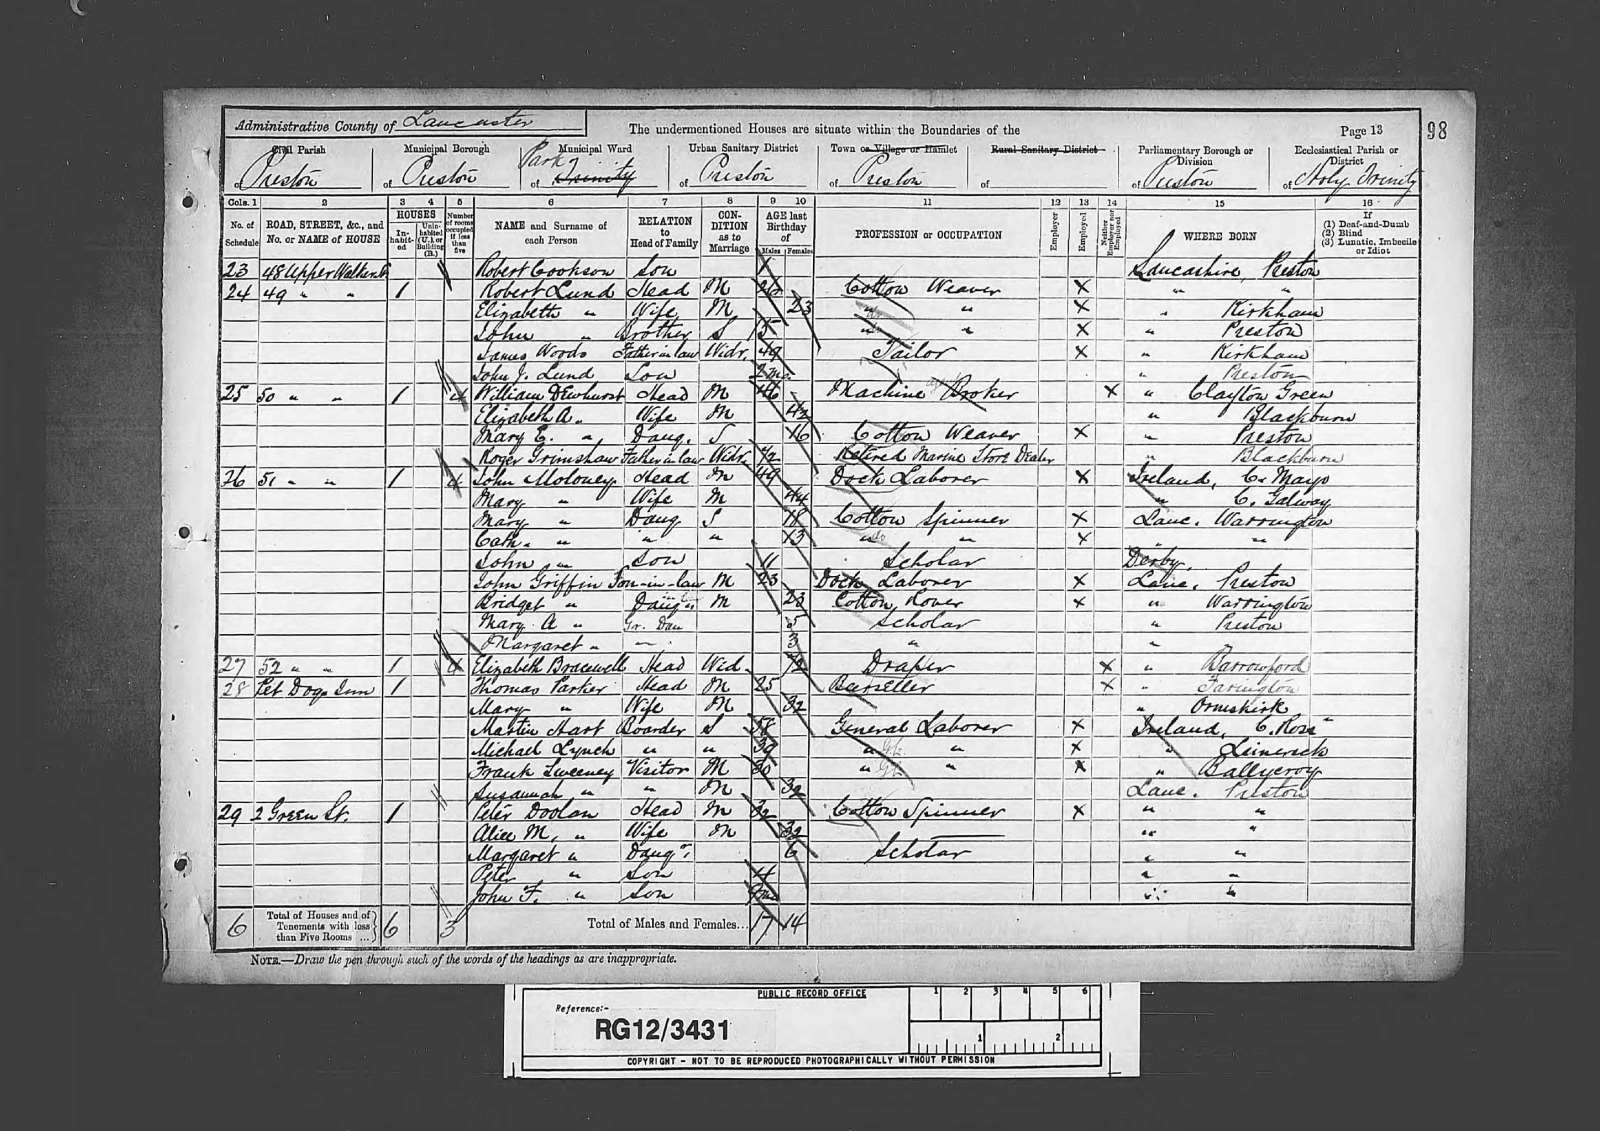 Administrative County of Lancaster
The undermentioned Houses are situate within the Boundaries of the
Page 13
98
Civil Parish of Preston
Municipal Borough of Preston
Municipal Ward of Park Trinity
Urban Sanitary District of Preston
Town or Village or Hamlet of Preston
Rural Sanitary District of
Parliamentary Borough or Division of Preston
Ecclesiastical Parish or District of Holy Trinity
Cols. 1 2 3 4 5 6 7 8 9 10 11 12 13 14 15 16
No. of Schedule
ROAD, STREET, &c., and No. or NAME of HOUSE
HOUSES
Inhabited
Uninhabited (U.) or Building (B.)
Number of rooms occupied if less than five
NAME and Surname of each Person
RELATION to Head of Family
CONDITION as to Marriage
AGE last Birthday of
Males Females
PROFESSION or OCCUPATION
Employer
Employed
Neither Employer nor Employed
WHERE BORN
If (1) Deaf-and-Dumb (2) Blind (3) Lunatic, Imbecile or Idiot
23 48 Upper Walker St Robert Cookson Son Lancashire, Preston
24 49 " " 1 Robert Lund Head M 26 Cotton Weaver X " "
Elizabeth " Wife M 23 " " X " Kirkham
John " Brother S 15 " " X " Preston
James Woods Father in law Widr. 49 Tailor X " Kirkham
John J. Lund Son 2 mo. " Preston
25 50 " " 1 4 William Dewhurst Head M 46 Machine Broker X " Clayton Green
Elizabeth A. " Wife M 42 " Blackburn
Mary E. " Daug. S 16 Cotton Weaver X " Preston
Roger Grimshaw Father in law Widr. 72 Retired Marine Store Dealer " Blackburn
26 51 " " 1 4 John Moloney Head M 49 Dock Laborer X Ireland, C. Mayo
Mary " Wife M 44 " C. Galway
Mary " Daug S 18 Cotton Spinner X Lanc. Warrington
Cath. " " " 13 " " X " "
John " Son 11 Scholar Derby.
John Griffin Son-in-law M 23 Dock Laborer X Lanc. Preston
Bridget " Daug M 23 Cotton Rover X " Warrington
Mary A " Gr. Dau 5 Scholar " Preston
Margaret " " 3 " " "
27 52 " " 1 4 Elizabeth Bracewell Head Wid. 72 Draper X " Barrowford
28 Pet Dog Inn 1 Thomas Parker Head M 25 Barseller X " Farington
Mary " Wife M 32 " Ormskirk
Martin Hart Boarder S 58 General Laborer X Ireland, C. Rosn
Michael Lynch " " 39 " " X " Limerick
Frank Sweeney Visitor M 30 " " X " Ballycroy
Susannah " " M 32 Lanc. Preston
29 2 Green St. 1 Peter Doolan Head M 32 Cotton Spinner X " "
Alice M. " Wife M 32 " "
Margaret " Daugr. 6 Scholar " "
Peter " Son 4 " "
John F. " Son 9 mo " "
6 Total of Houses and of Tenements with less than Five Rooms ... 6 3 Total of Males and Females... 17 14
NOTE.—Draw the pen through such of the words of the headings as are inappropriate.
PUBLIC RECORD OFFICE
1 2 3 4 5 6
Reference:-
RG12/3431
1 2
COPYRIGHT - NOT TO BE REPRODUCED PHOTOGRAPHICALLY WITHOUT PERMISSION